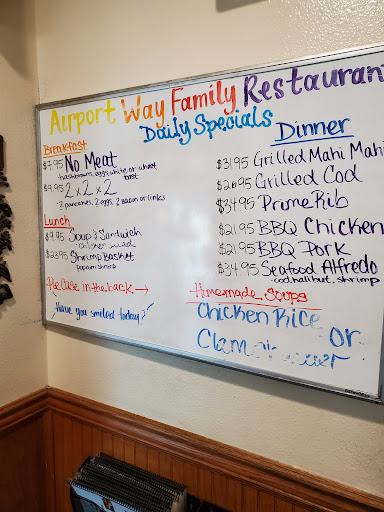 Airport Way Family Restaurant
Daily Specials
Breakfast
$7.95 No Meat
hashbrowns, eggs, white or wheat
toast
$9.95 2 x 2 x 2
2 pancakes, 2 eggs, 2 bacon or links
Lunch
$9.95 Soup & Sandwich
chicken salad
$23.95 Shrimp Basket
popcorn shrimp
Pie Case in the back →
Have you smiled today?
Dinner
$31.95 Grilled Mahi Mahi
$26.95 Grilled Cod
$34.95 Prime Rib
$21.95 BBQ Chicken
$21.95 BBQ Pork
$34.95 Seafood Alfredo
cod, halibut, shrimp
Homemade Soups
Chicken Rice
or